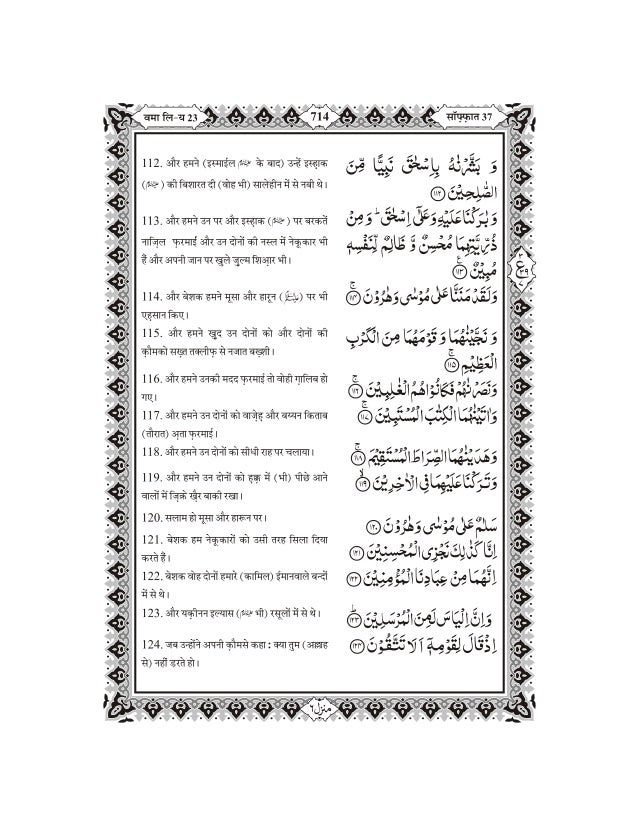 वमा लि-य 23
714
साॅफ़्फ़ात 37
112. और हमने (इस्माईल के बाद) उन्हें इस्हाक़
( ) की बिशारत दी (वोह भी) सालेहीन में से नबी थे।
113. और हमने उन पर और इस्हाक़ ( ) पर बरकतें
नाज़िल फ़रमाईं और उन दोनों की नस्ल में नेकूकार भी
हैं और अपनी जान पर खुले ज़ुल्म शिआ़र भी।
114. और बेशक हमने मूसा और हारून ( ) पर भी
एह़सान किए।
115. और हमने ख़ुद उन दोनों को और दोनों की
क़ौमको सख़्त तक्लीफ़ से नजात बख़्शी।
116. और हमने उनकी मदद फ़रमाई तो वोही ग़ालिब हो
गए।
117. और हमने उन दोनों को वाज़ेह़ और बय्यन किताब
(तौरात) अ़ता फ़रमाई।
118. और हमने उन दोनों को सीधी राह पर चलाया।
119. और हमने उन दोनों को ह़क़्क़ में (भी) पीछे आने
वालों में ज़िक्रे ख़ैर बाकी रखा।
120. सलाम हो मूसा और हारून पर।
121. बेशक हम नेकूकारों को उसी तरह सिला दिया
करते हैं।
122. बेशक वोह दोनों हमारे (कामिल) ईमानवाले बन्दों
में से थे।
123. और यक़ीनन इल्यास ( भी) रसूलों में से थे।
124. जब उन्होंने अपनी क़ौमसे कहा : क्या तुम (अल्लाह
से) नहीं डरते हो।
وَ بَشَّرْنٰهُ بِاِسْحٰقَ نَبِيًّا مِّنَ
الصّٰلِحِيْنَ ﴿۱۱۲﴾
وَ بٰرَكْنَا عَلَيْهِ وَ عَلٰۤى اِسْحٰقَ ؕ وَ مِنْ
ذُرِّيَّتِهِمَا مُحْسِنٌ وَّ ظَالِمٌ لِّنَفْسِهٖ
مُبِيْنٌ ﴿۱۱۳﴾
وَ لَقَدْ مَنَنَّا عَلٰى مُوْسٰى وَ هٰرُوْنَ ﴿۱۱۴﴾
وَ نَجَّيْنٰهُمَا وَ قَوْمَهُمَا مِنَ الْكَرْبِ
الْعَظِيْمِ ﴿۱۱۵﴾
وَ نَصَرْنٰهُمْ فَكَانُوْا هُمُ الْغٰلِبِيْنَ ﴿۱۱۶﴾
وَ اٰتَيْنٰهُمَا الْكِتٰبَ الْمُسْتَبِيْنَ ﴿۱۱۷﴾
وَ هَدَيْنٰهُمَا الصِّرَاطَ الْمُسْتَقِيْمَ ﴿۱۱۸﴾
وَ تَرَكْنَا عَلَيْهِمَا فِى الْاٰخِرِيْنَ ﴿۱۱۹﴾
سَلٰمٌ عَلٰى مُوْسٰى وَ هٰرُوْنَ ﴿۱۲۰﴾
اِنَّا كَذٰلِكَ نَجْزِى الْمُحْسِنِيْنَ ﴿۱۲۱﴾
اِنَّهُمَا مِنْ عِبَادِنَا الْمُؤْمِنِيْنَ ﴿۱۲۲﴾
وَ اِنَّ اِلْيَاسَ لَمِنَ الْمُرْسَلِيْنَ ﴿۱۲۳﴾
اِذْ قَالَ لِقَوْمِهٖۤ اَلَا تَتَّقُوْنَ ﴿۱۲۴﴾
۳
ع
۳۹
۷
منزل ۶